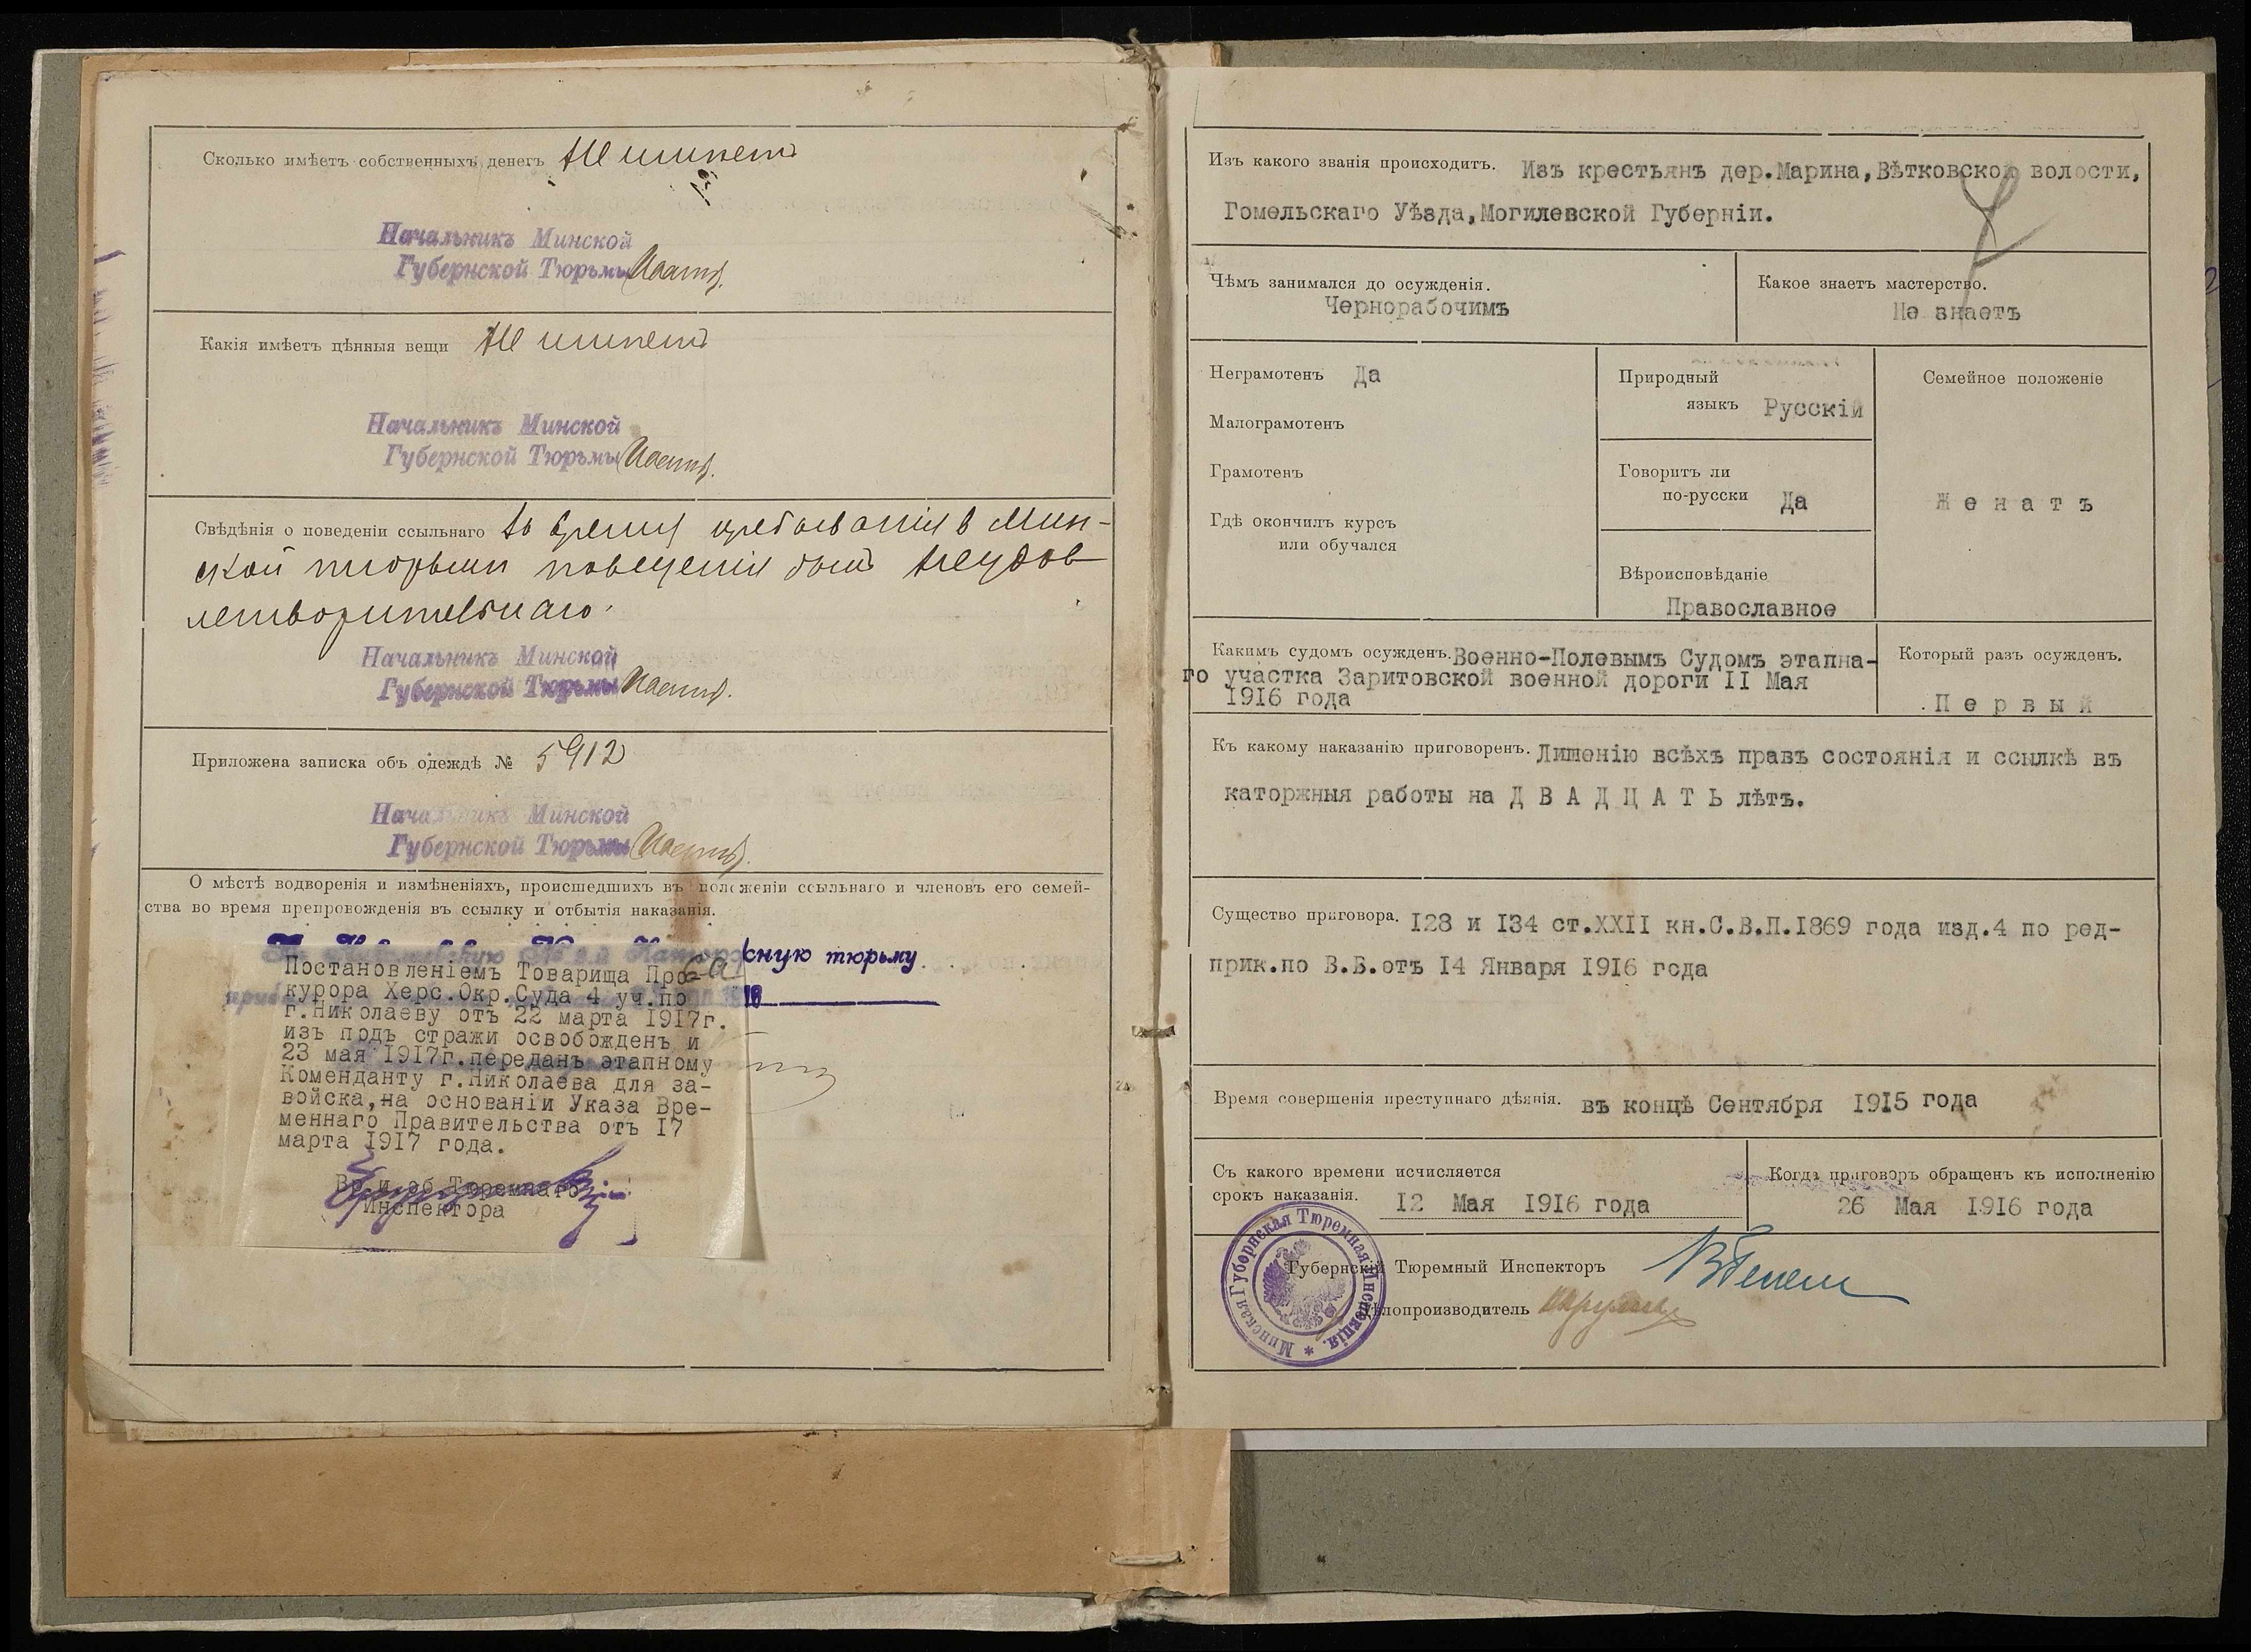 Сколько имѣетъ собственныхъ денегъ Не имѣетъ
Начальникъ Минской
Губернской Тюрьмы
Какія имѣетъ цѣнныя вещи Не имѣетъ
Начальникъ Минской
Губернской Тюрьмы
Свѣдѣнія о поведеніи ссыльнаго Во время пребыванія в Мин-
ской тюрьмѣ поведенія былъ неудов
летворительнаго.
Начальникъ Минской
Губернской Тюрьмы
Приложена записка объ одеждѣ № 5912
Начальникъ Минской
Губернской Тюрьмы
О мѣстѣ водворенія и измѣненіяхъ, происшедшихъ въ положеніи ссыльнаго и членовъ его семей-
ства во время препровожденія въ ссылку и отбытія наказанія.
сную тюрьму
Постановленіемъ Товарища Про-
курора Херс.Окр.Суда 4 уч.по
г.Николаеву отъ 22 марта 1917г.
изъ подъ стражи освобожденъ и
23 мая 1917г.переданъ этапному
Коменданту г.Николаева для за-
войска,на основаніи Указа Вре-
меннаго Правительства отъ 17
марта 1917 года.
Вр.и.об.Тюремнаго
Инспектора
Изъ какого званія происходитъ. Изъ крестьянъ дер.Марина,Вѣтковской волости,
Гомельскаго Уѣзда,Могилевской Губерніи.
Чѣмъ занимался до осужденія.
Чернорабочимъ
Какое знаетъ мастерство.
Не знаетъ
Неграмотенъ Да
Малограмотенъ
Грамотенъ
Гдѣ окончилъ курсъ
или обучался
Природный
языкъ Русскій
Говоритъ ли
по-русски Да
Вѣроисповѣданіе
Православное
Семейное положеніе
Женатъ
Какимъ судомъ осужденъ. Военно-Полевымъ Судомъ этапна-
го участка Заритовской военной дороги II Мая
1916 года
Который разъ осужденъ.
Первый
Къ какому наказанію приговоренъ. Лишенію всѣхъ правъ состоянія и ссылкѣ въ
каторжныя работы на ДВАДЦАТЬ лѣтъ.
Существо приговора. 128 и 134 ст.XXII кн.С.В.П.1869 года изд.4 по ред-
прик.по В.В.отъ 14 Января 1916 года
Время совершенія преступнаго дѣянія. въ концѣ Сентября 1915 года
Съ какого времени исчисляется
срокъ наказанія. 12 Мая 1916 года
Когда приговоръ обращенъ къ исполненію
26 Мая 1916 года
Губернскій Тюремный Инспекторъ
Дѣлопроизводитель
Минская Губернская Тюремная Инспекція.